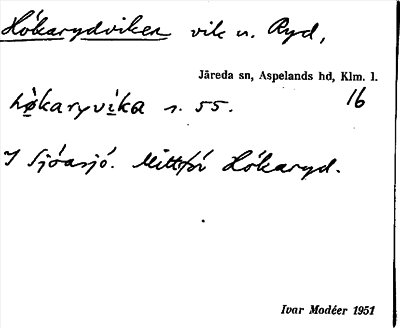 Hökarydviken vik u. Ryd,
Järeda sn, Aspelands hd, Klm. l.
16
hø̀karyvìka s. 55.
I Sjöasjö. Mittför Hökaryd.
Ivar Modéer 1951